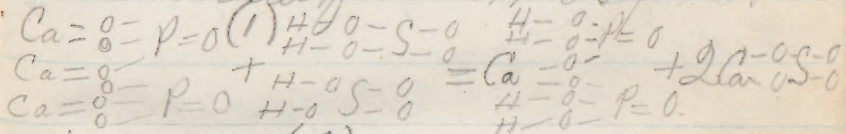 Ca = O O = P = O (1) H - O H - O - S - O O H - O H - O - P = O
Ca = O O + H - O H - O S - O O = Ca = O O + 2 Ca - O - O O S - O O
Ca = O O = P = O H - O H - O - P = O